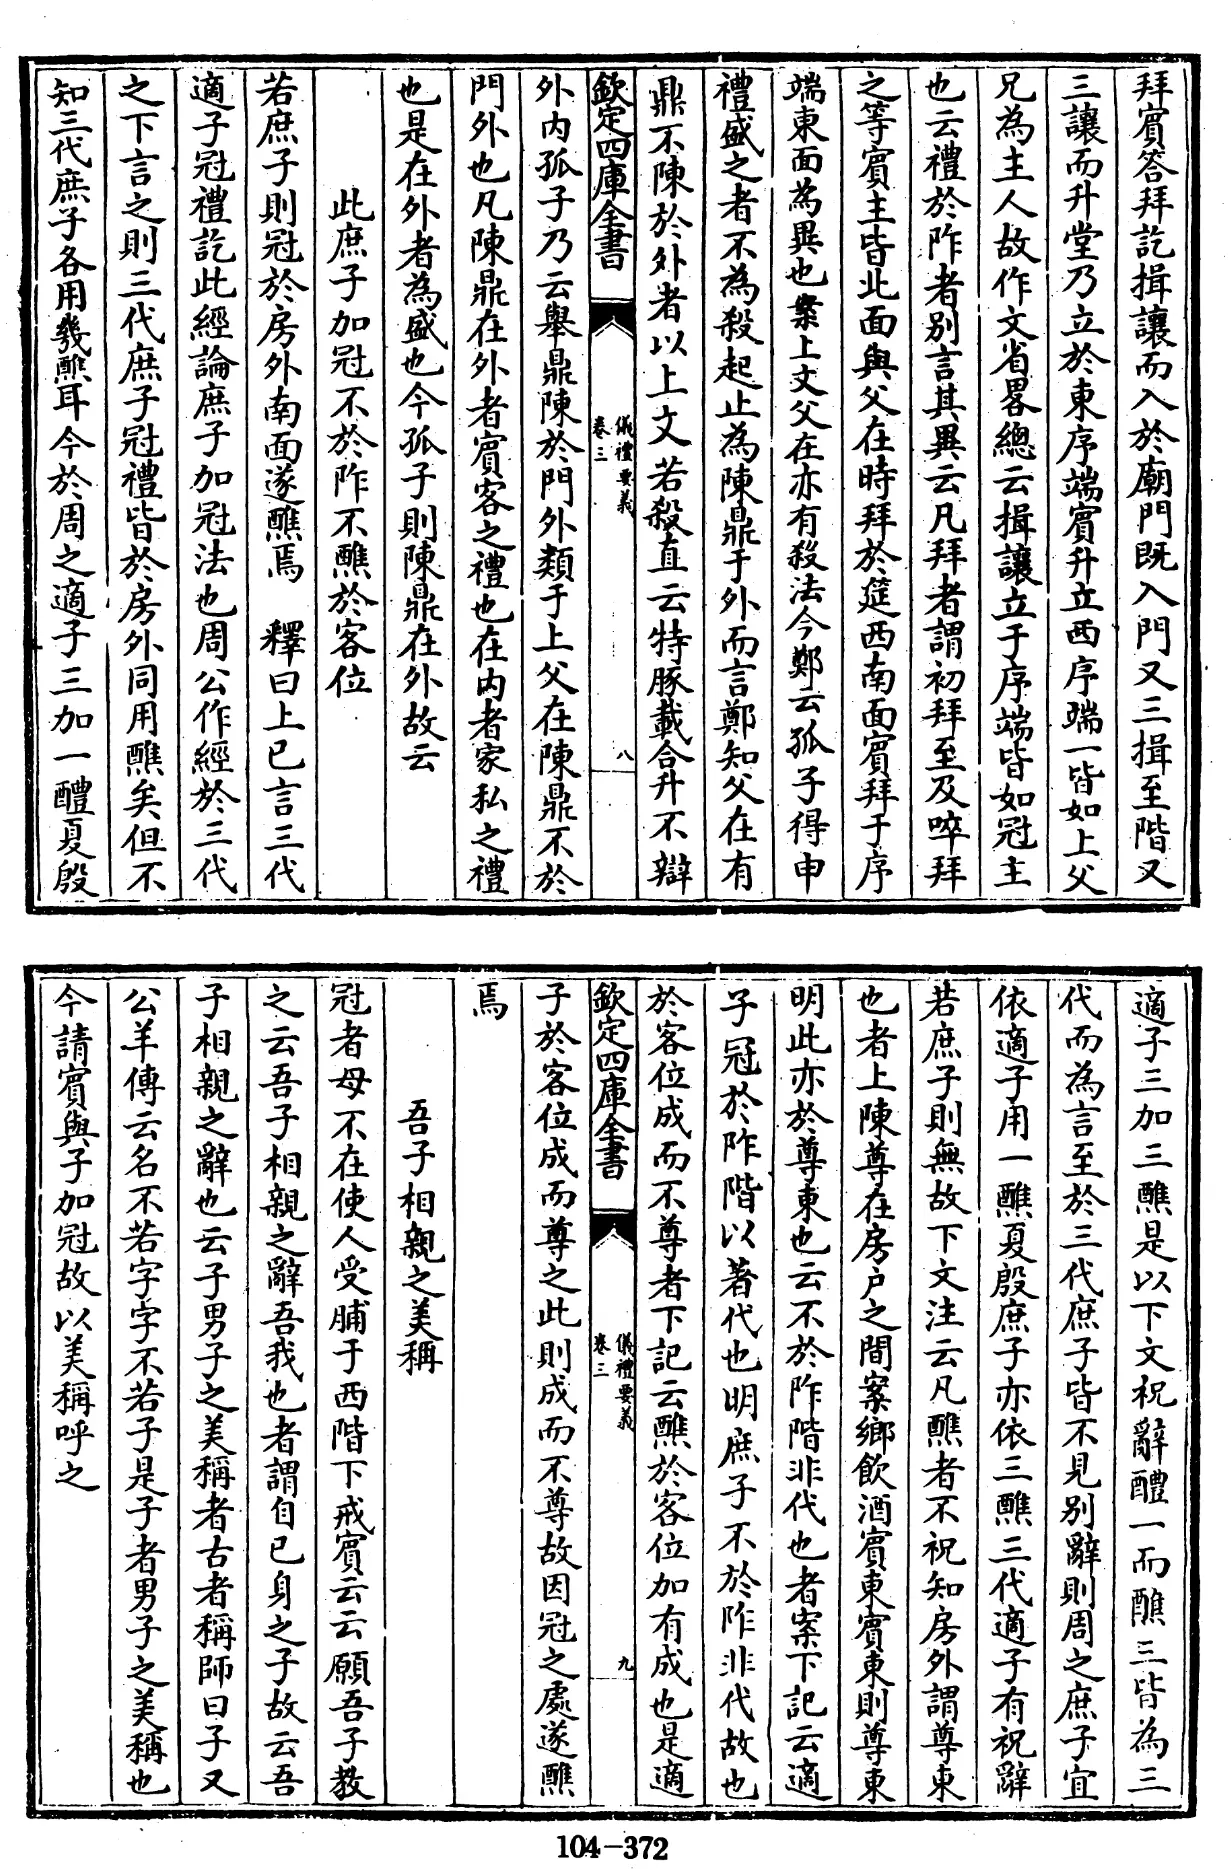 拜賓答拜訖揖讓而入於廟門既入門又三揖至階又
三讓而升堂乃立於東序端賓升立西序端一皆如上父
兄為主人故作文省畧總云揖讓立于序端皆如冠主
也云禮於阼者別言其異云凡拜者謂初拜至及啐拜
之等賓主皆北面與父在時拜於筵西南面賓拜于序
端東面為異也案上文父在亦有殺法今鄭云孤子得申
禮盛之者不為殺起止為陳鼎于外而言鄭知父在有
鼎不陳於外者以上文若殺直云特豚載合升不辯
欽定四庫全書
儀禮要義
卷三
八
外内孤子乃云舉鼎陳於門外類于上父在陳鼎不於
門外也凡陳鼎在外者賓客之禮也在内者家私之禮
也是在外者為盛也今孤子則陳鼎在外故云
此庶子加冠不於阼不醮於客位
若庶子則冠於房外南面遂醮焉　釋曰上已言三代
適子冠禮訖此經論庶子加冠法也周公作經於三代
之下言之則三代庶子冠禮皆於房外同用醮矣但不
知三代庶子各用幾醮耳今於周之適子三加一醴夏殷
適子三加三醮是以下文祝辭醴一而醮三皆為三
代而為言至於三代庶子皆不見別辭則周之庶子宜
依適子用一醮夏殷庶子亦依三醮三代適子有祝辭
若庶子則無故下文注云凡醮者不祝知房外謂尊東
也者上陳尊在房户之間案鄉飲酒賓東賓東則尊東
明此亦於尊東也云不於阼階非代也者案下記云適
子冠於阼階以著代也明庶子不於阼非代故也
於客位成而不尊者下記云醮於客位加有成也是適
欽定四庫全書
儀禮要義
卷三
九
子於客位成而尊之此則成而不尊故因冠之處遂醮
焉
吾子相親之美稱
冠者母不在使人受脯于西階下戒賓云云願吾子教
之云吾子相親之辭吾我也者謂自已身之子故云吾
子相親之辭也云子男子之美稱者古者稱師曰子又
公羊傳云名不若字字不若子是子者男子之美稱也
今請賓與子加冠故以美稱呼之
104-372